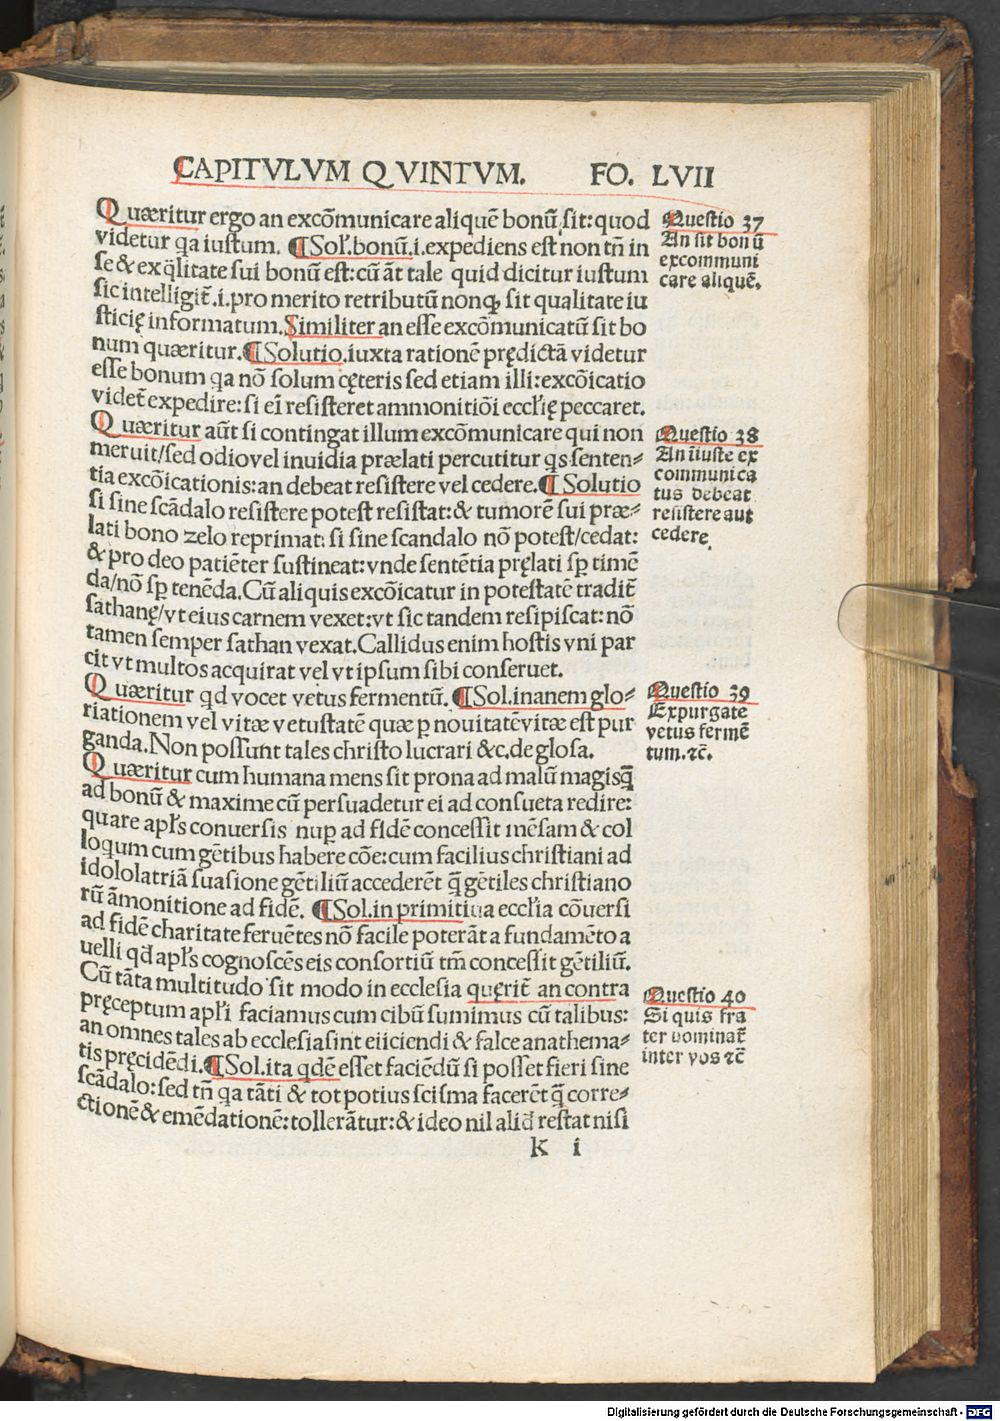 CAPITVLVM QVINTVM. FO. LVII
Quæritur ergo an excõmunicare aliquẽ bonũ sit: quod
videtur qa iustum. ¶ Sol. bonũ .i. expediens est non tñ in
se & ex q̃litate sui bonũ est: cũ ãt tale quid dicitur iustum
sic intelligit᷑ .i. pro merito retributũ nonq̃ sit qualitate iu
sticię informatum. Similiter an esse excõmunicatũ sit bo
num quæritur. ¶ Solutio. iuxta rationẽ prędictã videtur
esse bonum qa nõ solum cęteris sed etiam illi: excõicatio
videt᷑ expedire: si eĩ resisteret ammonitiõi ecclię peccaret.
Quæritur aũt si contingat illum excõmunicare qui non
meruit/sed odio vel inuidia prælati percutitur qs senten⸗
tia excõicationis: an debeat resistere vel cedere. ¶ Solutio
si sine scãdalo resistere potest resistat: & tumorẽ sui præ⸗
lati bono zelo reprimat: si sine scandalo nõ potest/cedat:
& pro deo patiẽter sustineat: vnde sentẽtia pręlati sꝑ timẽ
da/nõ sꝑ tenẽda. Cũ aliquis excõicatur in potestatẽ tradit᷑
sathanę/vt eius carnem vexet: vt sic tandem resipiscat: nõ
tamen semper sathan vexat. Callidus enim hostis vni par
cit vt multos acquirat vel vt ipsum sibi conseruet.
Quæritur qd vocet vetus fermentũ. ¶ Sol. inanem glo⸗
riationem vel vitæ vetustatẽ quæ ꝑ nouitatẽ vitæ est pur
ganda. Non possunt tales christo lucrari &c. de glosa.
Quæritur cum humana mens sit prona ad malũ magisq̃
ad bonũ & maxime cũ persuadetur ei ad consueta redire:
quare apłs conuersis nuꝑ ad fidẽ concessit mẽsam & col
loqum cum gẽtibus habere cõe: cum facilius christiani ad
idololatriã suasione gẽtiliũ accederẽt q̃ gẽtiles christiano
rũ ãmonitione ad fidẽ. ¶ Sol. in primitiua ecclia cõuersi
ad fidẽ charitate feruẽtes nõ facile poterãt a fundamẽto a
uelli qđ apłs cognoscẽs eis consortiũ tm̃ concessit gẽtiliũ.
Cũ tãta multitudo sit modo in ecclesia quęrit᷑ an contra
pręceptum apłi faciamus cum cibũ sumimus cũ talibus:
an omnes tales ab ecclesia sint eiiciendi & falce anathema⸗
tis pręcidẽdi. ¶ Sol. ita qdẽ esset faciẽdũ si posset fieri sine
scãdalo: sed tñ qa tãti & tot potius scisma facerẽt q̃ corre⸗
ctionẽ & emẽdationẽ: tollerãtur: & ideo nil aliđ restat nisi
k i
Questio 37
An sit bonũ
excommuni
care aliquẽ.
Questio 38
An iniuste ex
communica
tus debeat
resistere aut
cedere.
Questio 39
Expurgate
vetus fermẽ
tum. ⁊c̃.
Questio 40
Si quis fra
ter nominat᷑
inter vos ⁊c̃
Digitalisierung gefördert durch die Deutsche Forschungsgemeinschaft - DFG